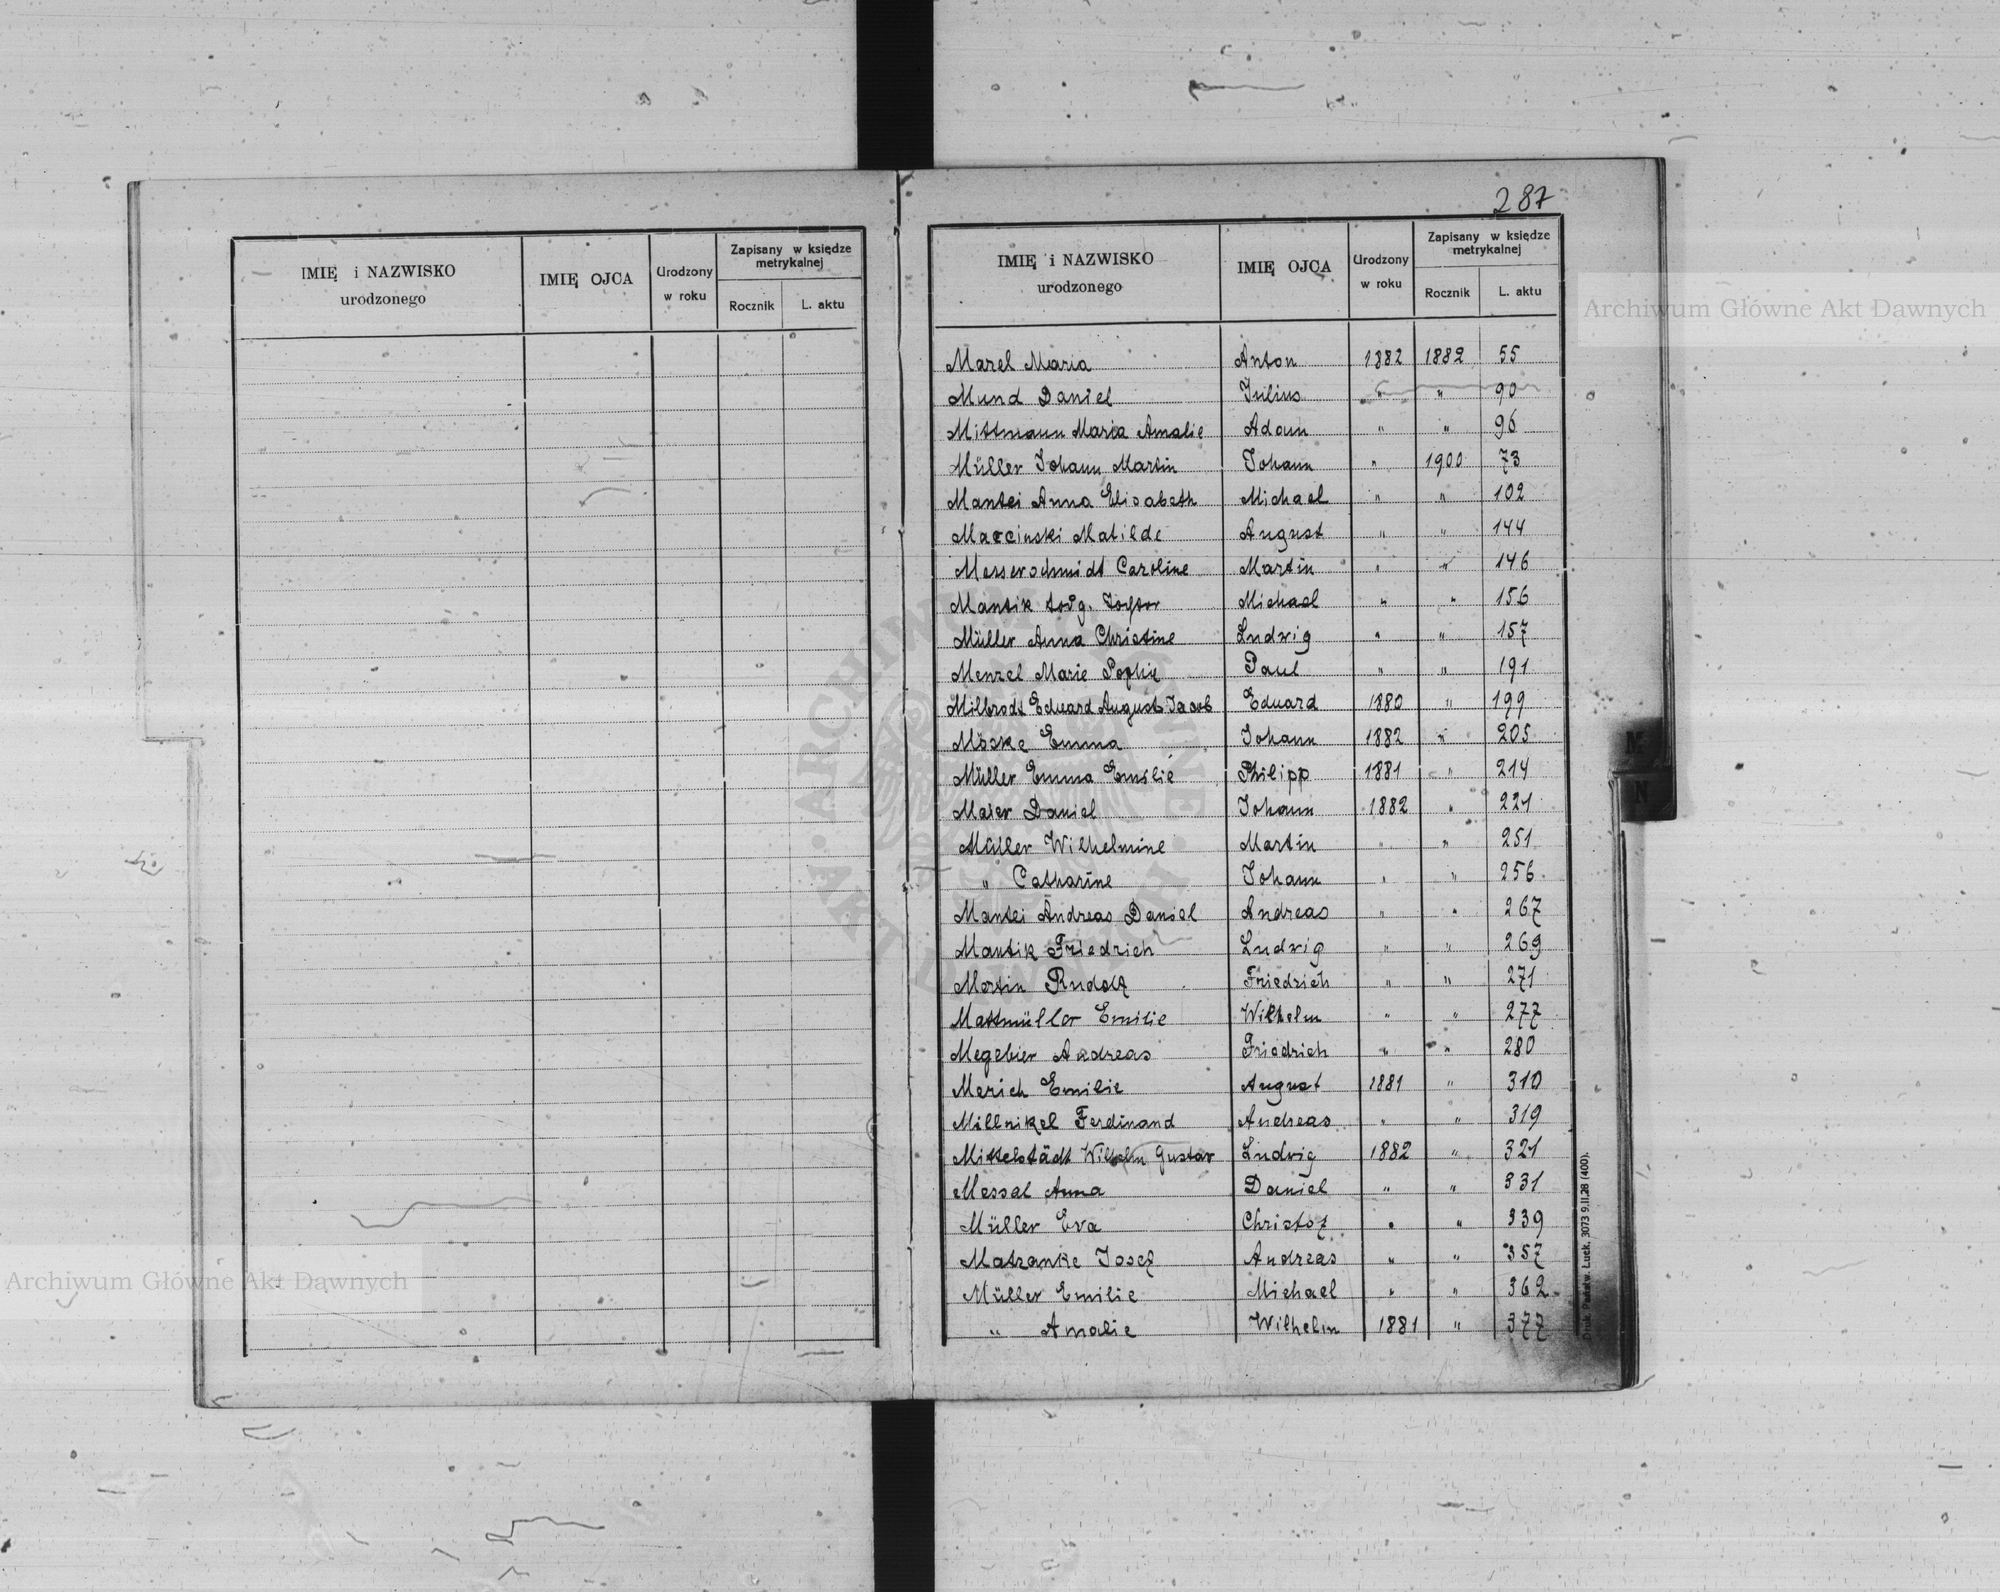 287
IMIĘ i NAZWISKO urodzonego IMIĘ OJCA Urodzony w roku Zapisany w księdze metrykalnej Rocznik L. aktu
IMIĘ i NAZWISKO urodzonego IMIĘ OJCA Urodzony w roku Zapisany w księdze metrykalnej Rocznik L. aktu
Marel Maria Anton 1882 1882 55
Mund Daniel Julius " " 90
Mittmann Maria Amalie Adam " " 96
Müller Johann Martin Johann " 1900 73
Mantei Anna Elisabeth Michael " " 102
Marcinski Matilde August " " 144
Messerschmidt Caroline Martin " " 146
Mantik Michael " " 156
Müller Anna Christine Ludwig " " 157
Menzel Marie Sophie Paul " " 191
Milbrodt Eduard August Jacob Eduard 1880 " 199
Möske Emma Johann 1882 " 205
Müller Emma Emilie Philipp 1881 " 214
Maier Daniel Johann 1882 " 221
Müller Wilhelmine Martin " " 251
" Catharine Johann " " 256
Mantei Andreas Daniel Andreas " " 267
Mantik Friedrich Ludwig " " 269
Mertin Rudolf Friedrich " " 271
Mattmüller Emilie Wilhelm " " 277
Megebier Andreas Friedrich " " 280
Merich Emilie August 1881 " 310
Millnikel Ferdinand Andreas " " 319
Mittelstädt Wilhelm Gustav Ludwig 1882 " 321
Messal Anna Daniel " " 331
Müller Eva Christof " " 339
Matzanke Josef Andreas " " 357
Müller Emilie Michael " " 362
" Amalie Wilhelm 1881 " 377
Druk. Państw. Łuck. 3073 9.II.28 (400).
M
N
Archiwum Główne Akt Dawnych
Archiwum Główne Akt Dawnych